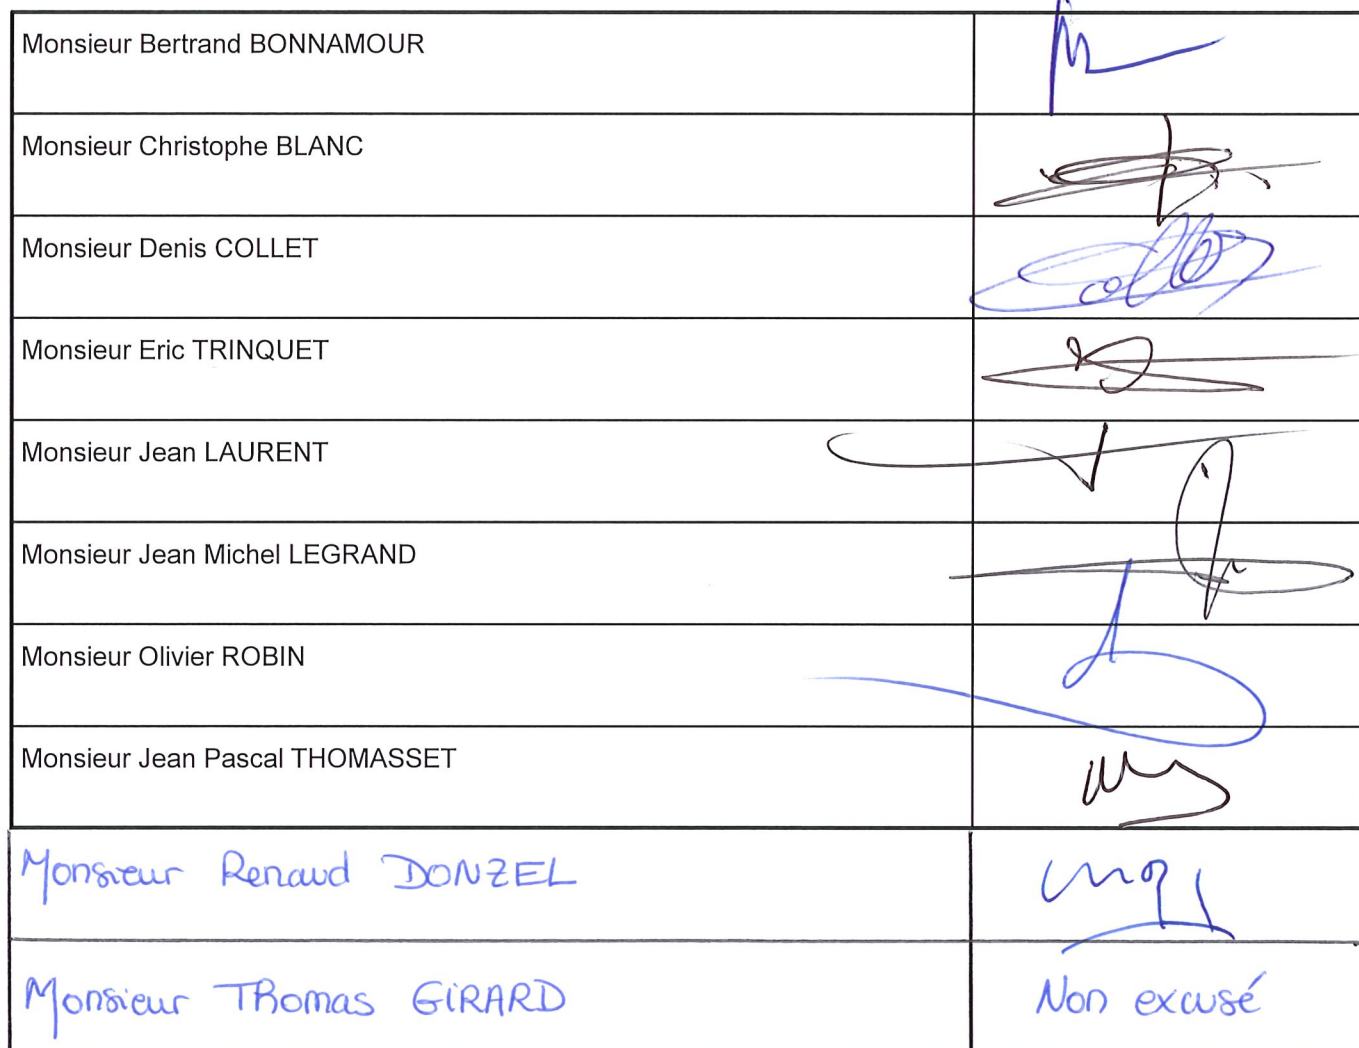 Monsieur Bertrand BONNAMOUR
Monsieur Christophe BLANC
Monsieur Denis COLLET
Monsieur Eric TRINQUET
Monsieur Jean LAURENT
Monsieur Jean Michel LEGRAND
Monsieur Olivier ROBIN
Monsieur Jean Pascal THOMASSET
Monsieur Renaud DONZEL
Monsieur Thomas GIRARD Non excusé